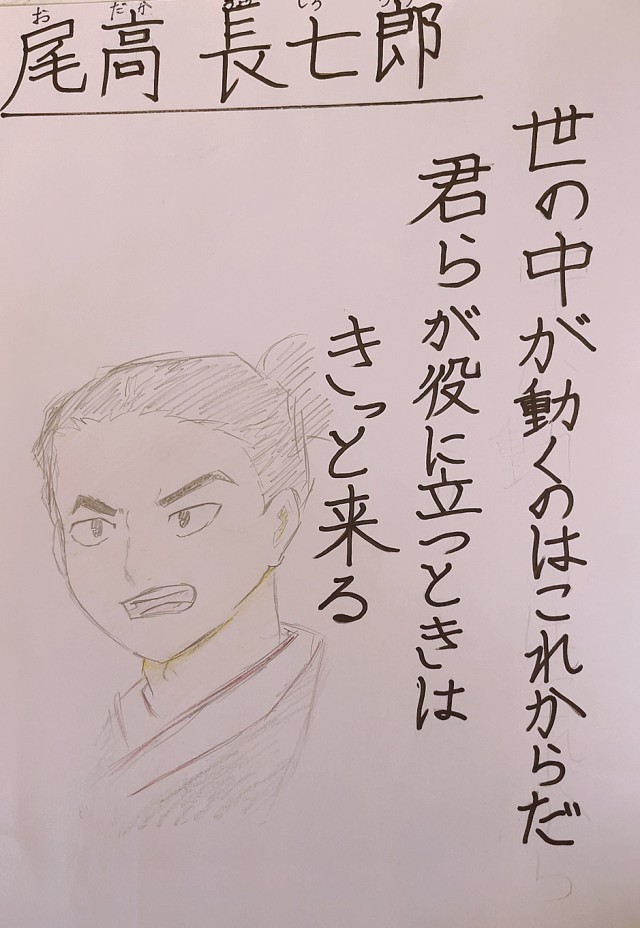 尾高 長七郎
おだか しち
世の中が動くのはこれからだ
君らが役に立つときは
きっと来る